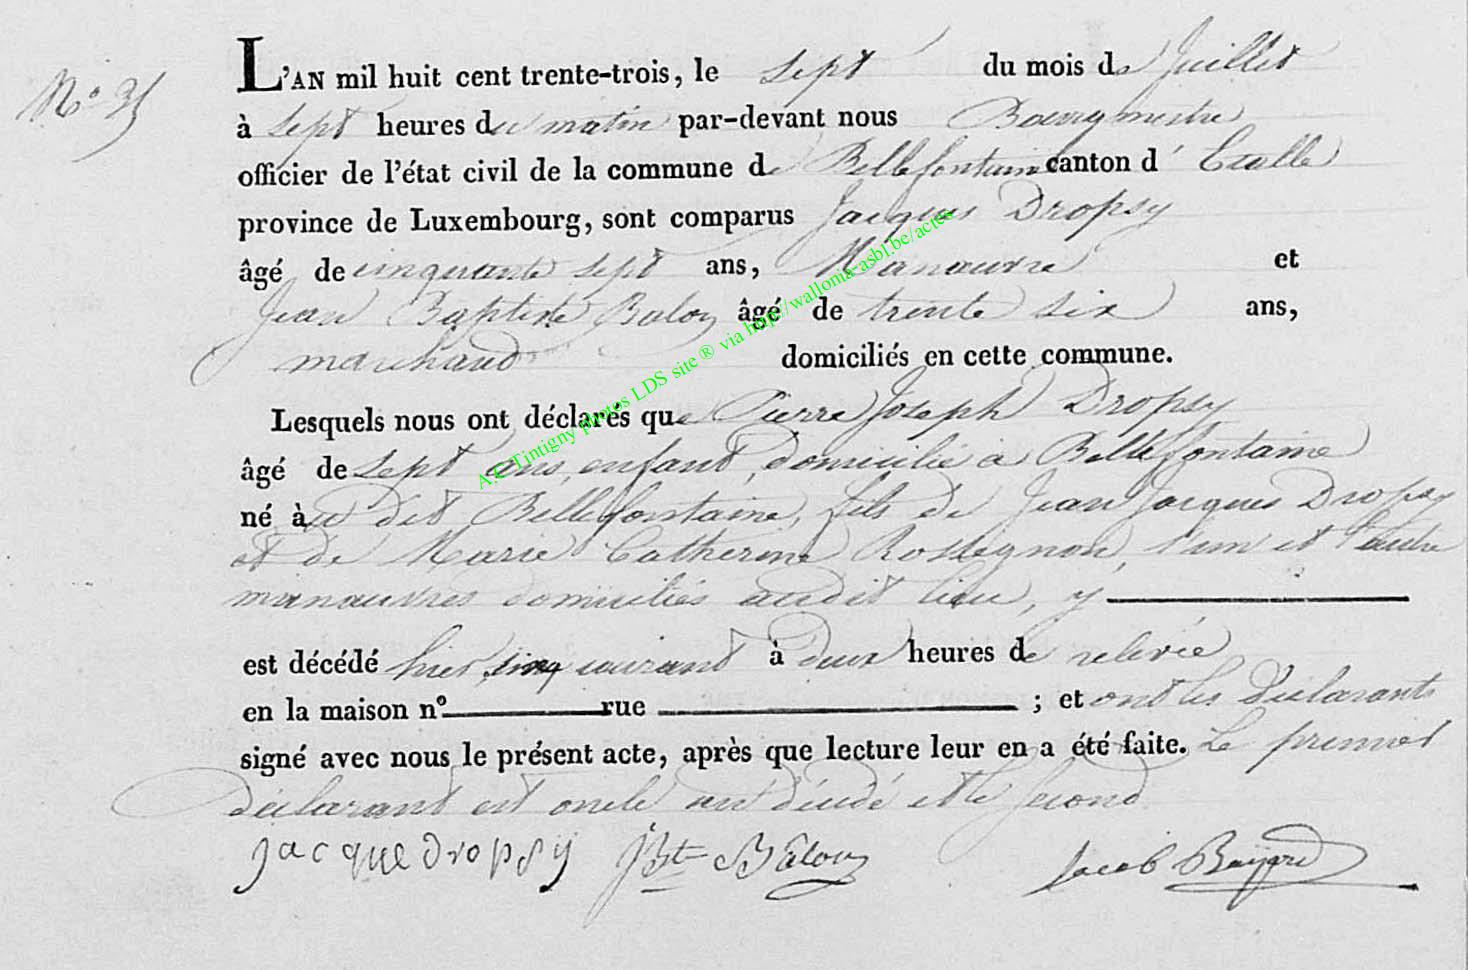 L'AN mil huit cent trente-trois, le sept du mois de Juillet
à sept heures du matin par-devant nous Bourgmestre
officier de l'état civil de la commune de Bellefontaine canton d'Etalle
province de Luxembourg, sont comparus Jacques Dropsy
âgé de cinquante sept ans, Manœuvre et
Jean Baptiste Baloy âgé de trente six ans,
marchand domiciliés en cette commune.
Lesquels nous ont déclarés que Pierre Joseph Dropsy
âgé de sept ans, enfant, domicilié a Bellefontaine
né au dit Bellefontaine, fils de Jean Jacques Dropsy
et de Marie Catherine Rossignon, l'un et l'autre
manœuvres domiciliés audit lieu, y
est décédé hier cinq courant à deux heures de relevée
en la maison nº rue ; et ont les déclarants
signé avec nous le présent acte, après que lecture leur en a été faite. Le premier
déclarant est oncle au décédé et le second
jacque dropsy JBte Balouy Jacob
A.E. Tintigny photos LDS site ® via http://wallonia-asbl.be/actes